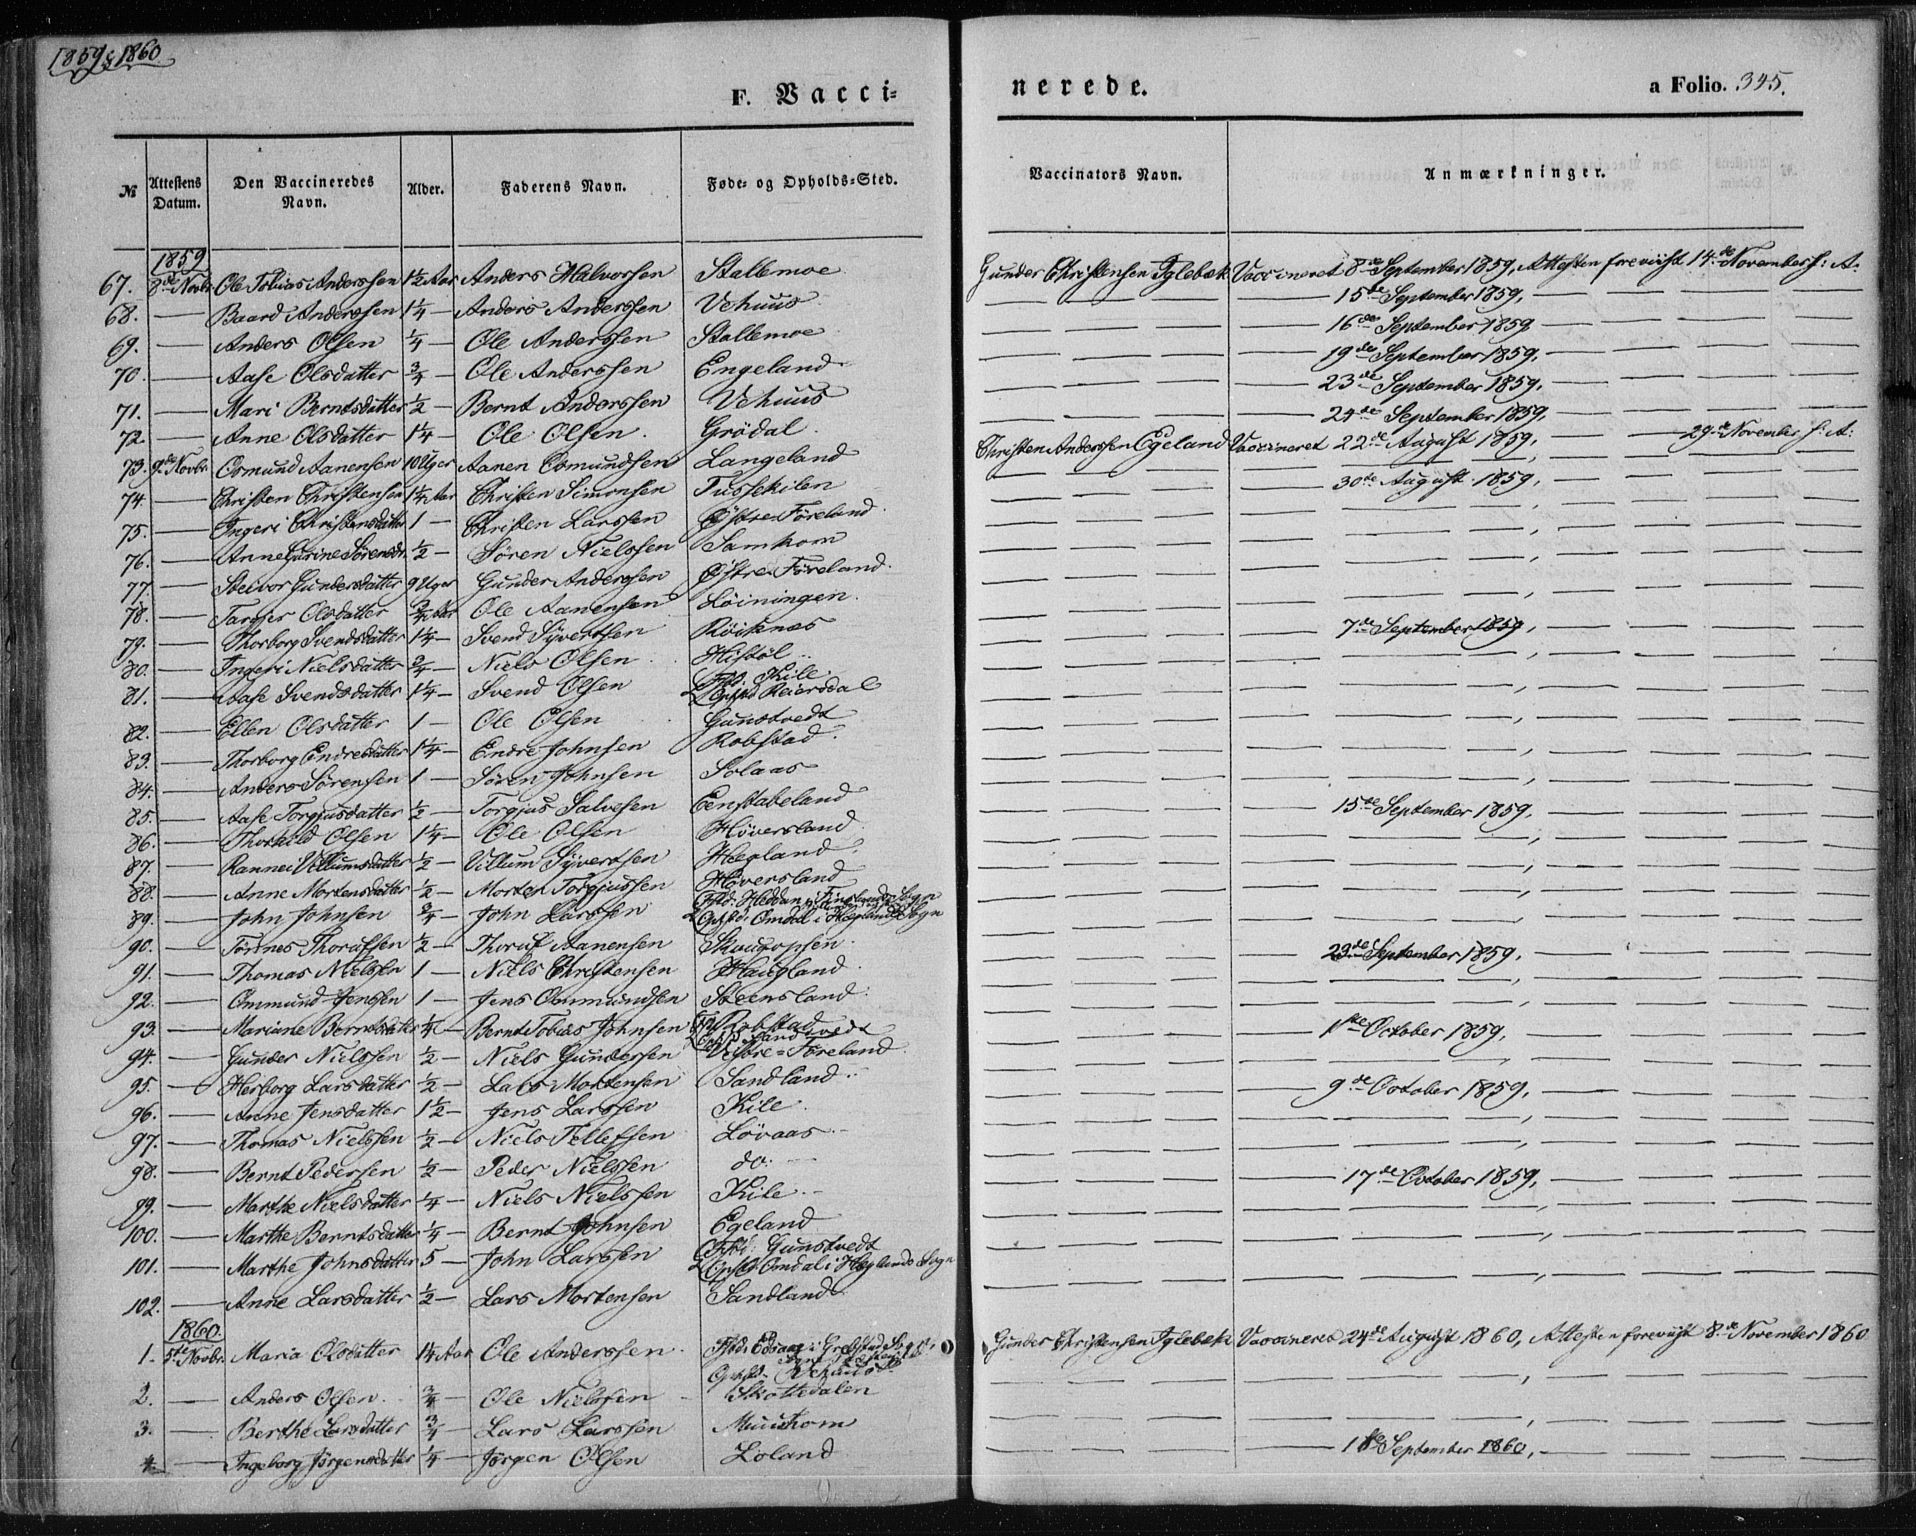 1859 & 1860
F. Vacci-
nerede.
a Folio. 345.
№ Attestens Datum. Den Vaccineredes Navn. Alder. Faderens Navn. Føde- og Opholds-Sted. Vaccinators Navn. Anmærkninger.
1859
67. 8de Novbr Ole Tobias Anderssen 1½ Aar Anders Halvorsen Stallemoe Gunder Christensen Iglebæk Vaccineret 8de September 1859, Attesten foreviist 14de November s: A.
68. — Baard Anderssen 1¼ — Anders Anderssen Vehuus — 15de September 1859, —
69. — Anders Olsen ¼ — Ole Anderssen Stallemoe — 16de September 1859 —
70. — Aase Olsdatter ¾ — Ole Anderssen Engeland — 19de September 1859. —
71. — Mari Berntsdatter ½ — Bernt Anderssen Vehuus — 23de September 1859, —
72. — Anne Olsdatter 1¼ — Ole Olsen Grödal — 24de September 1859, —
73. 9de Novbr Osmund Aanensen 10 Uger Aanen Osmundsen Langeland Christen Anderssen Egeland Vaccineret 22de August 1859, — 29de November s: A:
74. — Christen Christensen 1¼ Aar Christen Simonsen Tussekilen — 30de August 1859, —
75. — Ingeri Christensdatter 1 — Christen Larssen Östre Föreland —
76. — Anne Gurine Sörensdr. ½ — Sören Nielssen Samkom —
77. — Steivor Gundersdatter 9 Uger Gunder Anderssen Östre Föreland. —
78. — Targjer Olsdatter ¾ Aar Ole Aanensen Löiningen. —
79. — Thorborg Svendsdatter 1¼ — Svend Syvertsen Röisknes — 7de September 1859, —
80. — Ingeri Nielsdatter ¾ — Niels Olsen Histöl —
81. — Aase Svendsdatter 1¼ — Svend Olsen Fstd. Kile Opstd Reiersdal —
82. — Ellen Olsdatter 1 — Ole Olsen Gunstvedt —
83. — Thorborg Endresdatter 1¼ — Endre Johnsen Robstad —
84. — Anders Sörensen 1 — Sören Johnsen Solaas —
85. — Aase Torgjusdatter ½ — Torgjus Salvesen Eenstabeland — 15de September 1859, —
86. — Thorkild Olsen 1¼ — Ole Olsen Höversland —
87. — Rannei Villumsdatter ½ — Villum Syvertsen Hægland —
88. — Anne Mortensdatter ½ — Morten Torgjussen Höversland —
89. — John Johnsen ¾ — John Larssen Fstd: Heddan i Finslands Sogn Opstd. Omdal i Hæglands Sogn —
90. — Tönnes Thorufsen ½ — Thoruf Aanensen Skougopsen —
91. — Thomas Nielsen 1 — Niels Christensen Haugland — 23de September 1859, —
92. — Ommund Jenssen 1 — Jens Ommundsen Steensland —
93. — Mariane Berntsdatter ¼ — Bernt Tobias Johnsen Fstd Robstad —
94. — Gunder Nielssen ½ — Niels Gundersen Vestre-Föreland — 1ste October 1859, —
95. — Herborg Larsdatter ½ — Lars Mortensen Sandland —
96. — Anne Jensdatter 1½ — Jens Larssen Kile — 9de October 1859, —
97. — Thomas Nielssen ½ — Niels Tellefsen Lövaas —
98. — Bernt Pedersen ½ — Peder Nielssen do. —
99. — Marthe Nielsdatter ¼ — Niels Nielssen Kile — 17de October 1859, —
100. — Marthe Berntsdatter ¼ — Bernt Johnsen Egeland —
101. — Marthe Johnsdatter 5 — John Larssen Fstd: Gunstvedt Opstd Omdal i Hæglands Sogn —
102. — Anne Larsdatter ½ — Lars Mortensen Sandland —
1860.
1. 5te Novbr. Maria Olsdatter 1¼ Aar Ole Anderssen Opstd. Vehuus Gunder Christensen Iglebæk Vaccineret 24de August 1860, Attesten foreviist 8de November 1860
2. — Anders Olsen ¾ — Ole Nielssen Skottedalen —
3. — Berthe Larsdatter ¾ — Lars Larssen Muushom —
4. — Ingeborg Jörgensdatter ¼ — Jörgen Olsen Loland — 18de September 1860, —